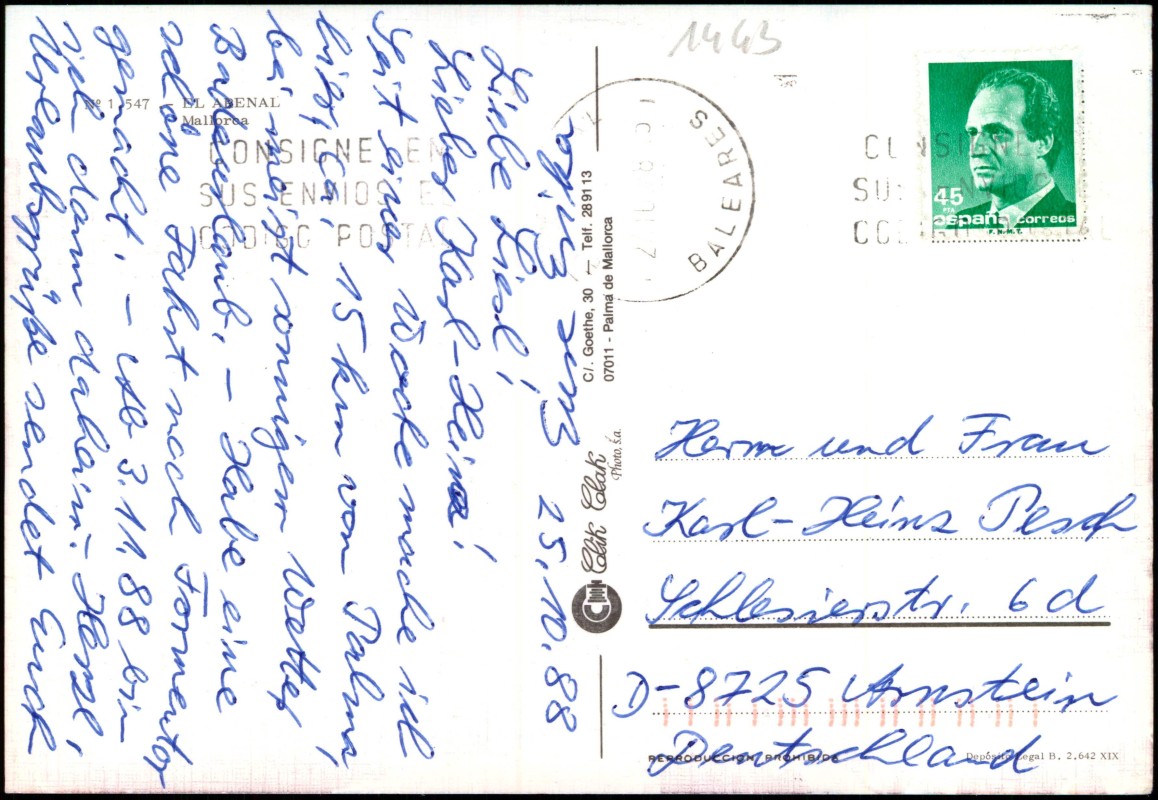 1443
Nº 1.547 - EL ARENAL
Mallorca
25.10.88
Liebe Liesl,
Lieber Karl-Heinz!
Seit einer Woche mache ich
hier, ca. 15 km von Palma,
bei meist sonnigem Wetter,
Badeurlaub. – Habe eine
schöne Fahrt nach Formentor
gemacht. – Ab 3.11.88 bin
ich dann daheim. Herzl.
Urlaubsgrüße sendet Euch
CONSIGNE EN
SUS ENVIOS EL
CODIGO POSTAL
BALEARES
C/. Goethe, 30 - Telf. 28 91 13
07011 - Palma de Mallorca
Clik Clak
Photo, s.a.
45 PTA
españa correos
F.N.M.T.
Herrn und Frau
Karl-Heinz Pesch
Schlesierstr. 6 d
D-8725 Arnstein
Deutschland
REPRODUCCION PROHIBIDA
Depósito Legal B. 2.642 XIX